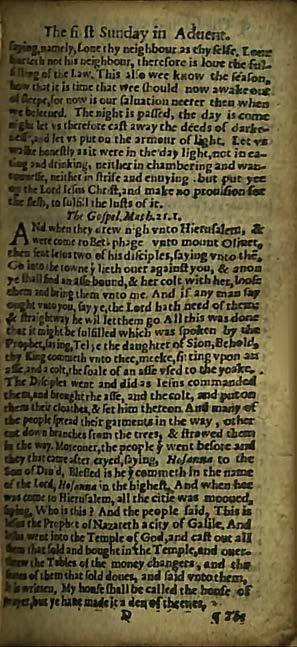 The first Sunday in Aduent.
saying, namely, Loue thy neighbour as thy selfe. Loue
hurteth not his neighbour, therefore is loue the ful-
filling of the Law. This also wee know the season,
how that it is time that wee should now awake out
of sleepe, for now is our saluation neerer then when
we beleeued. The night is passed, the day is come
nigh: let vs therefore cast away the deeds of darke-
nesse, and let vs put on the armour of light. Let vs
walke honestly as it were in the day light, not in ea-
ting and drinking, neither in chambering and wan-
tonnesse, neither in strife and enuying: but put yee
on the Lord Iesus Christ, and make no prouision for
the flesh, to fulfill the lusts of it.
The Gospel. Math. 21.1.
ANd when they drew nigh vnto Hierusalem, &
were come to Bethphage vnto mount Oliuet,
then sent Iesus two of his disciples, saying vnto thē,
Go into the towne ẏ lieth ouer against you, & anon
ye shall find an asse bound, & her colt with her, loose
them and bring them vnto me. And if any man say
ought vnto you, say ye, the Lord hath need of them:
& straightway he will let them go. All this was done
that it might be fulfilled which was spoken by the
Prophet, saying, Tel ye the daughter of Sion, Behold,
thy King commeth vnto thee, meeke, sitting vpon an
asse, and a colt, the foale of an asse vsed to the yoake.
The Disciples went and did as Iesus commanded
them, and brought the asse, and the colt, and put on
them their cloathes, & set him thereon. And many of
the people spread their garments in the way, other
cut down branches from the trees, & strawed them
in the way. Moreouer, the people ẏ went before and
they that came after cryed, saying, Hosanna to the
Son of Dauid, Blessed is he ẏ commeth in the name
of the Lord, Hosanna in the highest. And when hee
was come to Hierusalem, all the citie was mooued,
saying, Who is this? And the people said, This is
Iesus the Prophet of Nazareth a city of Galile. And
Iesus went into the Temple of God, and cast out all
them that sold and bought in the Temple, and ouer-
threw the Tables of the money changers, and the
seates of them that sold doues, and said vnto them,
It is written, My house shall be called the house of
prayer, but ye haue made it a den of theeues.
D ¶ The